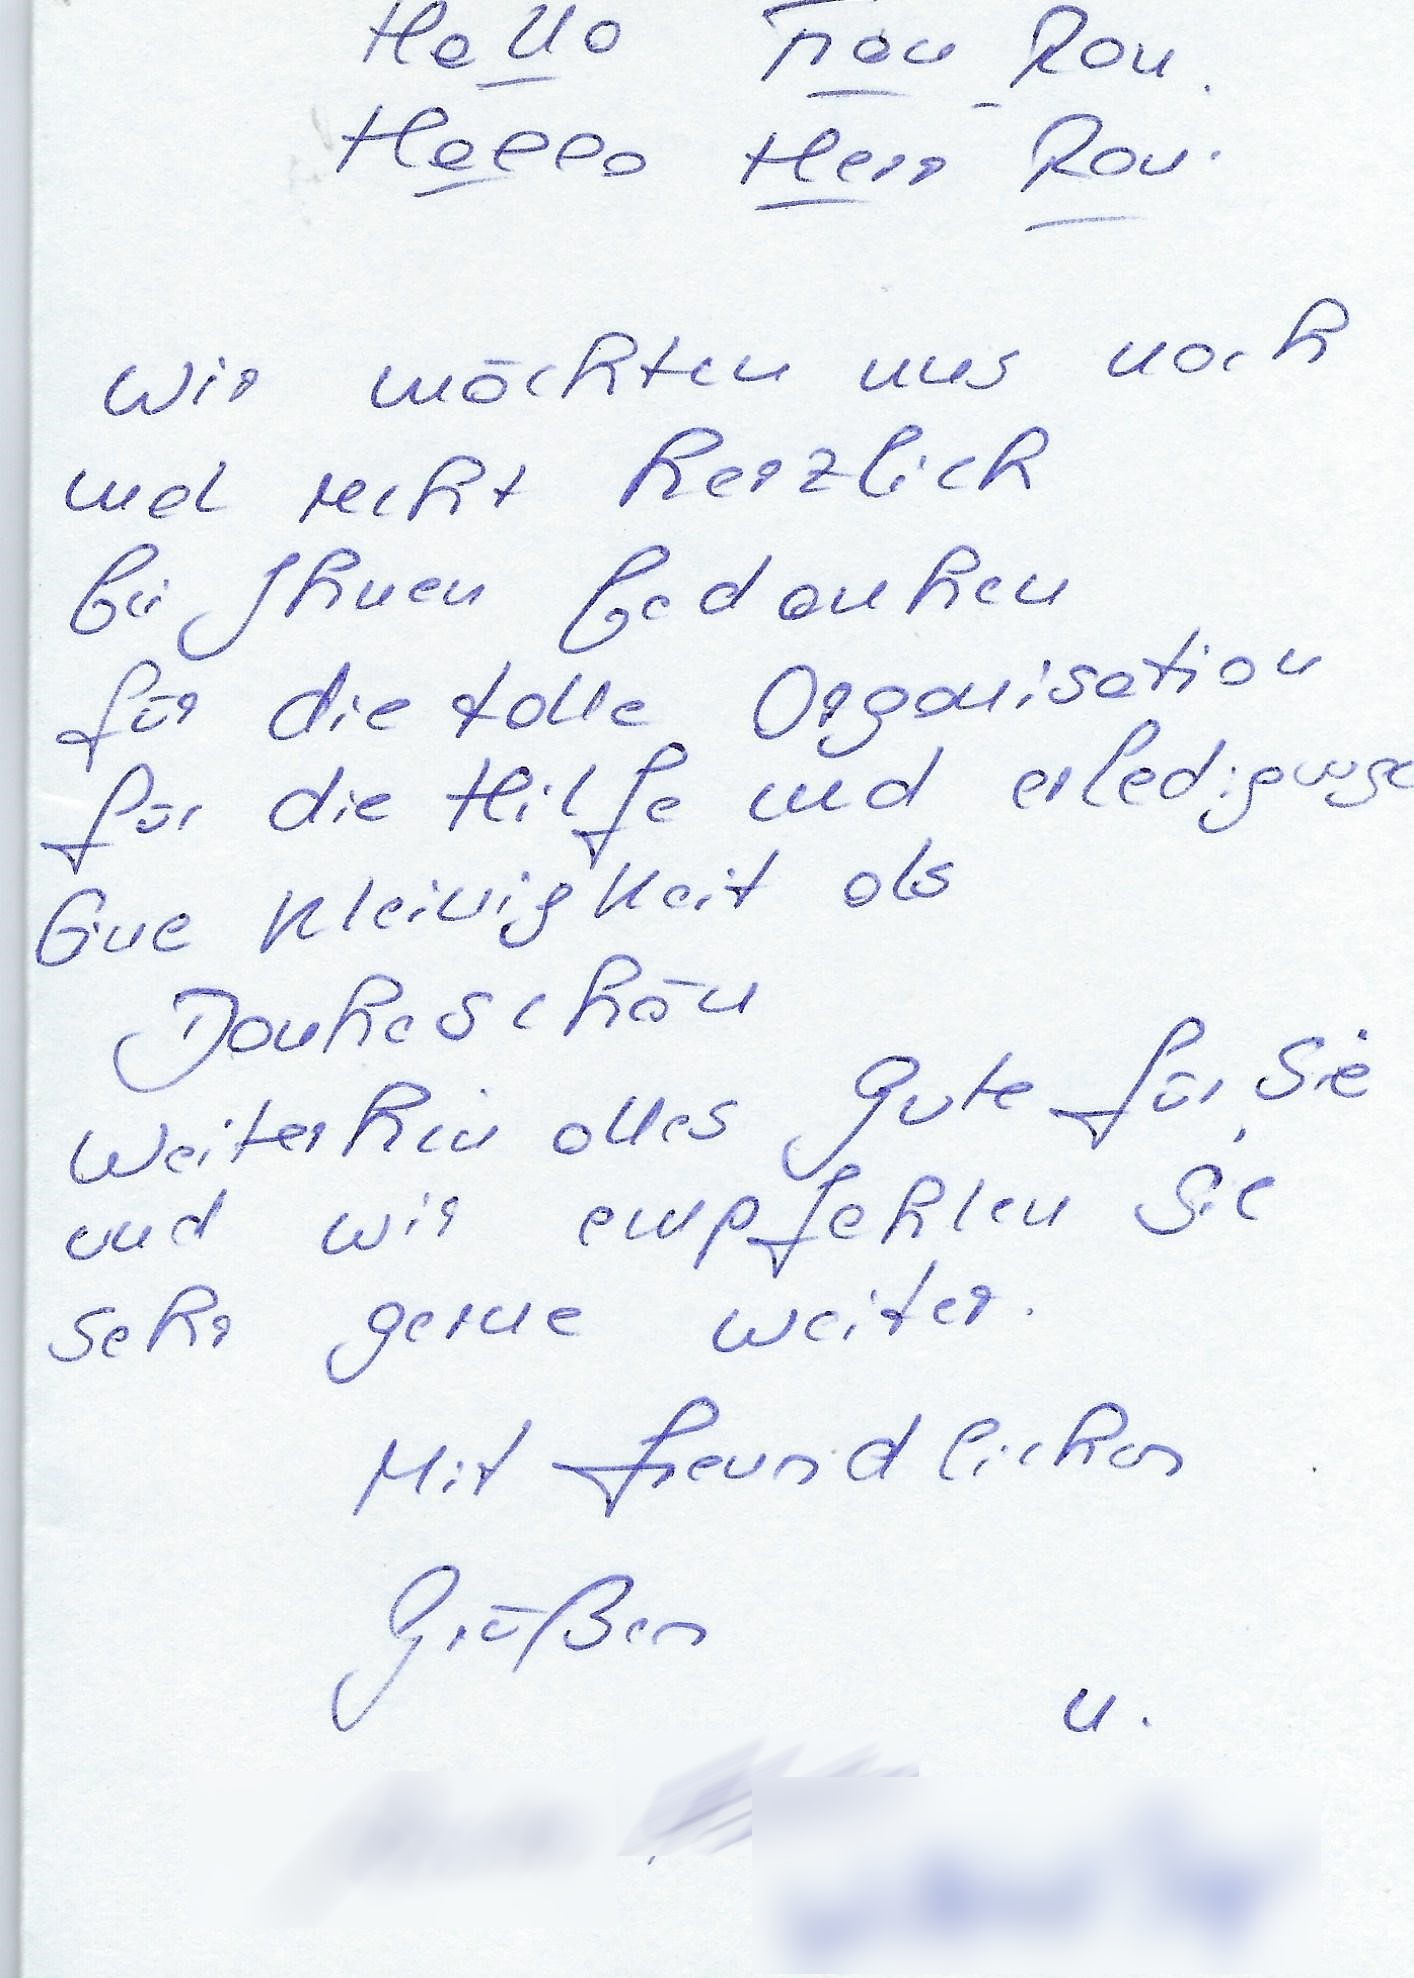 Hallo Frau Rau.
Hallo Herr Rau.
Wir möchten uns noch
mal recht herzlich
bei Ihnen bedanken
für die tolle Organisation
für die Hilfe und erledigunge
Eine Kleinigkeit als
Dankeschön
Weiterhin alles Gute für Sie
und wir empfehlen Sie
sehr gerne weiter.
Mit freundlichen
Grüßen
u.